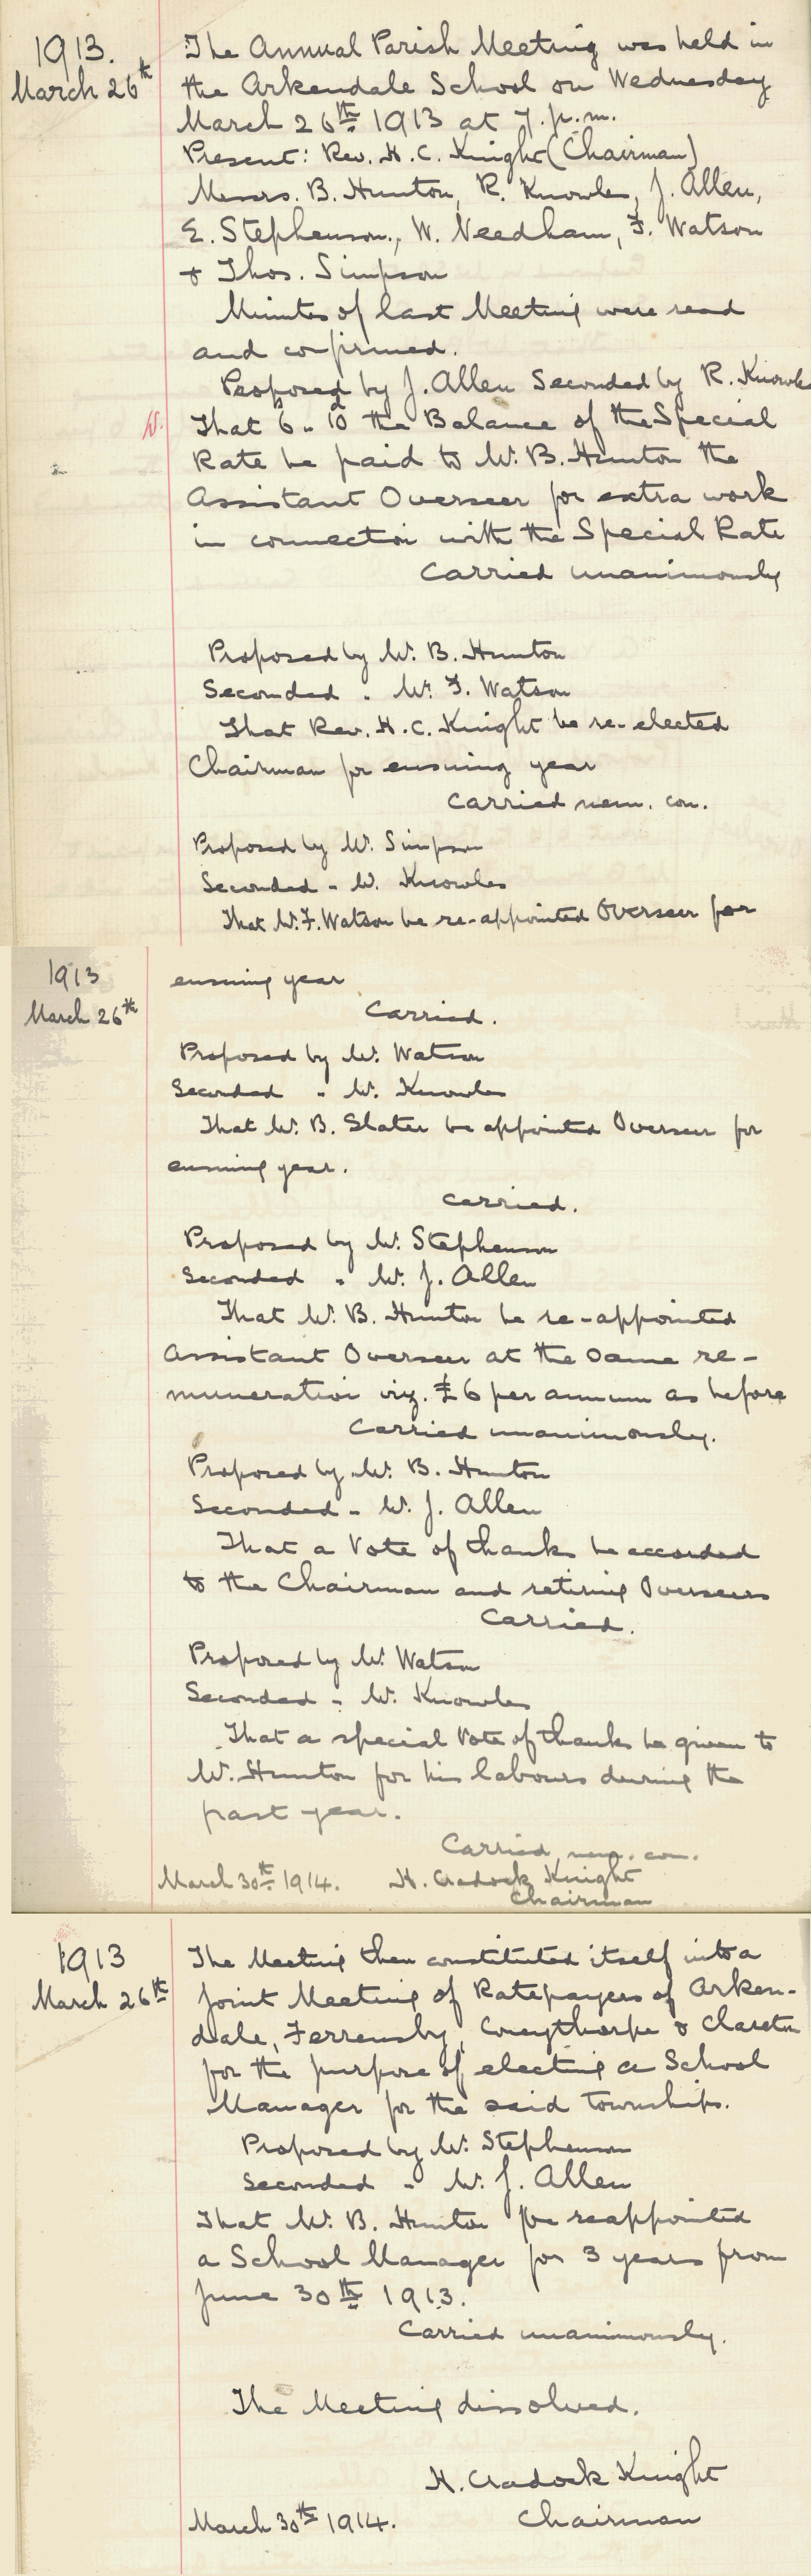 1913.
March 26th
The Annual Parish Meeting was held in
the Arkendale School on Wednesday
March 26th 1913 at 7.p.m.
Present: Rev. H. C. Knight (Chairman)
Messrs. B. Hunton, R. Knowles, J. Allen,
E. Stephenson, W. Needham, F. Watson
& Thos. Simpson
Minutes of last Meeting were read
and confirmed.
Proposed by J. Allen Seconded by R. Knowles
That 6s - 10d the Balance of the Special
Rate be paid to Mr. B. Hunton the
Assistant Overseer for extra work
in connection with the Special Rate
Carried unanimously
Proposed by Mr. B. Hunton
Seconded " Mr. F. Watson
That Rev. H. C. Knight be re-elected
Chairman for ensuing year
Carried nem. con.
Proposed by Mr. Simpson
Seconded " Mr. Knowles
That Mr. F. Watson be re-appointed Overseer for
1913
March 26th
ensuing year
Carried.
Proposed by Mr. Watson
Seconded " Mr. Knowles
That Mr. B. Slater be appointed Overseer for
ensuing year.
Carried.
Proposed by Mr. Stephenson
Seconded " Mr. J. Allen
That Mr. B. Hunton be re-appointed
Assistant Overseer at the same re-
muneration viz. £6 per annum as before
Carried unanimously.
Proposed by Mr. B. Hunton
Seconded " Mr. J. Allen
That a Vote of thanks be accorded
to the Chairman and retiring Overseers
Carried.
Proposed by Mr. Watson
Seconded " Mr. Knowles
That a special Vote of thanks be given to
Mr. Hunton for his labours during the
past year.
Carried nem. con.
March 30th 1914. H. Cradock Knight
Chairman
1913
March 26th
The Meeting then constituted itself into a
Joint Meeting of Ratepayers of Arken-
dale, Ferrensby, Coneythorpe & Clareton
for the purpose of electing a School
Manager for the said townships.
Proposed by Mr. Stephenson
Seconded " Mr. J. Allen
That Mr. B. Hunton be reappointed
a School Manager for 3 years from
June 30th 1913.
Carried unanimously.
The Meeting dissolved.
H. Cradock Knight
March 30th 1914. Chairman